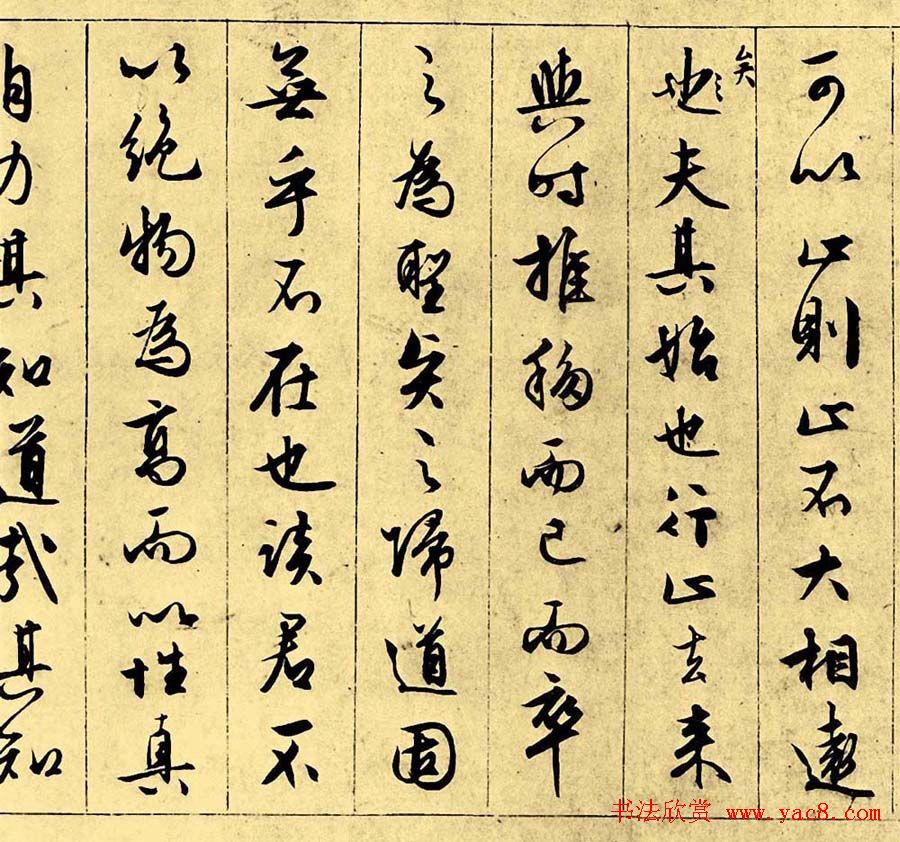 可以止則止不大相遠
矣
也夫其始也行止去来
與時推移而已而卒
之為聖矣之歸道固
無乎不在也談君不
以絶物為高而以性真
自力其知道哉其知
书法欣赏 www.yac8.com